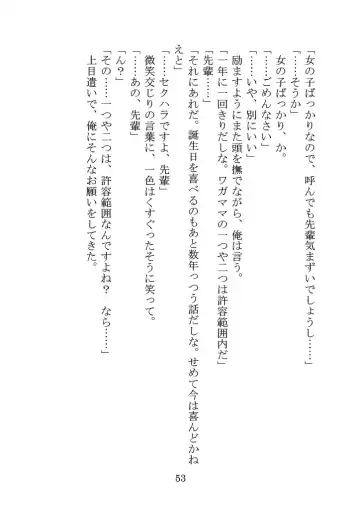 「女の子ばっかりなので、呼んでも先輩気まずいでしょうし……」
「……そうか」
女の子ばっかり、か。
「……ごめんなさい」
「……いや、別にいい」
励ますようにまた頭を撫でながら、俺は言う。
「一年に一回きりだしな。ワガママの一つや二つは許容範囲内だ」
「先輩……」
「それにあれだ。誕生日を喜べるのもあと数年っつう話だしな。せめて今は喜んどかね
えと」
「……セクハラですよ、先輩」
微笑交じりの言葉に、一色はくすぐったそうに笑って。
「……あの、先輩」
「ん？」
「その……一つや二つは、許容範囲なんですよね？　なら……」
上目遣いで、俺にそんなお願いをしてきた。
53